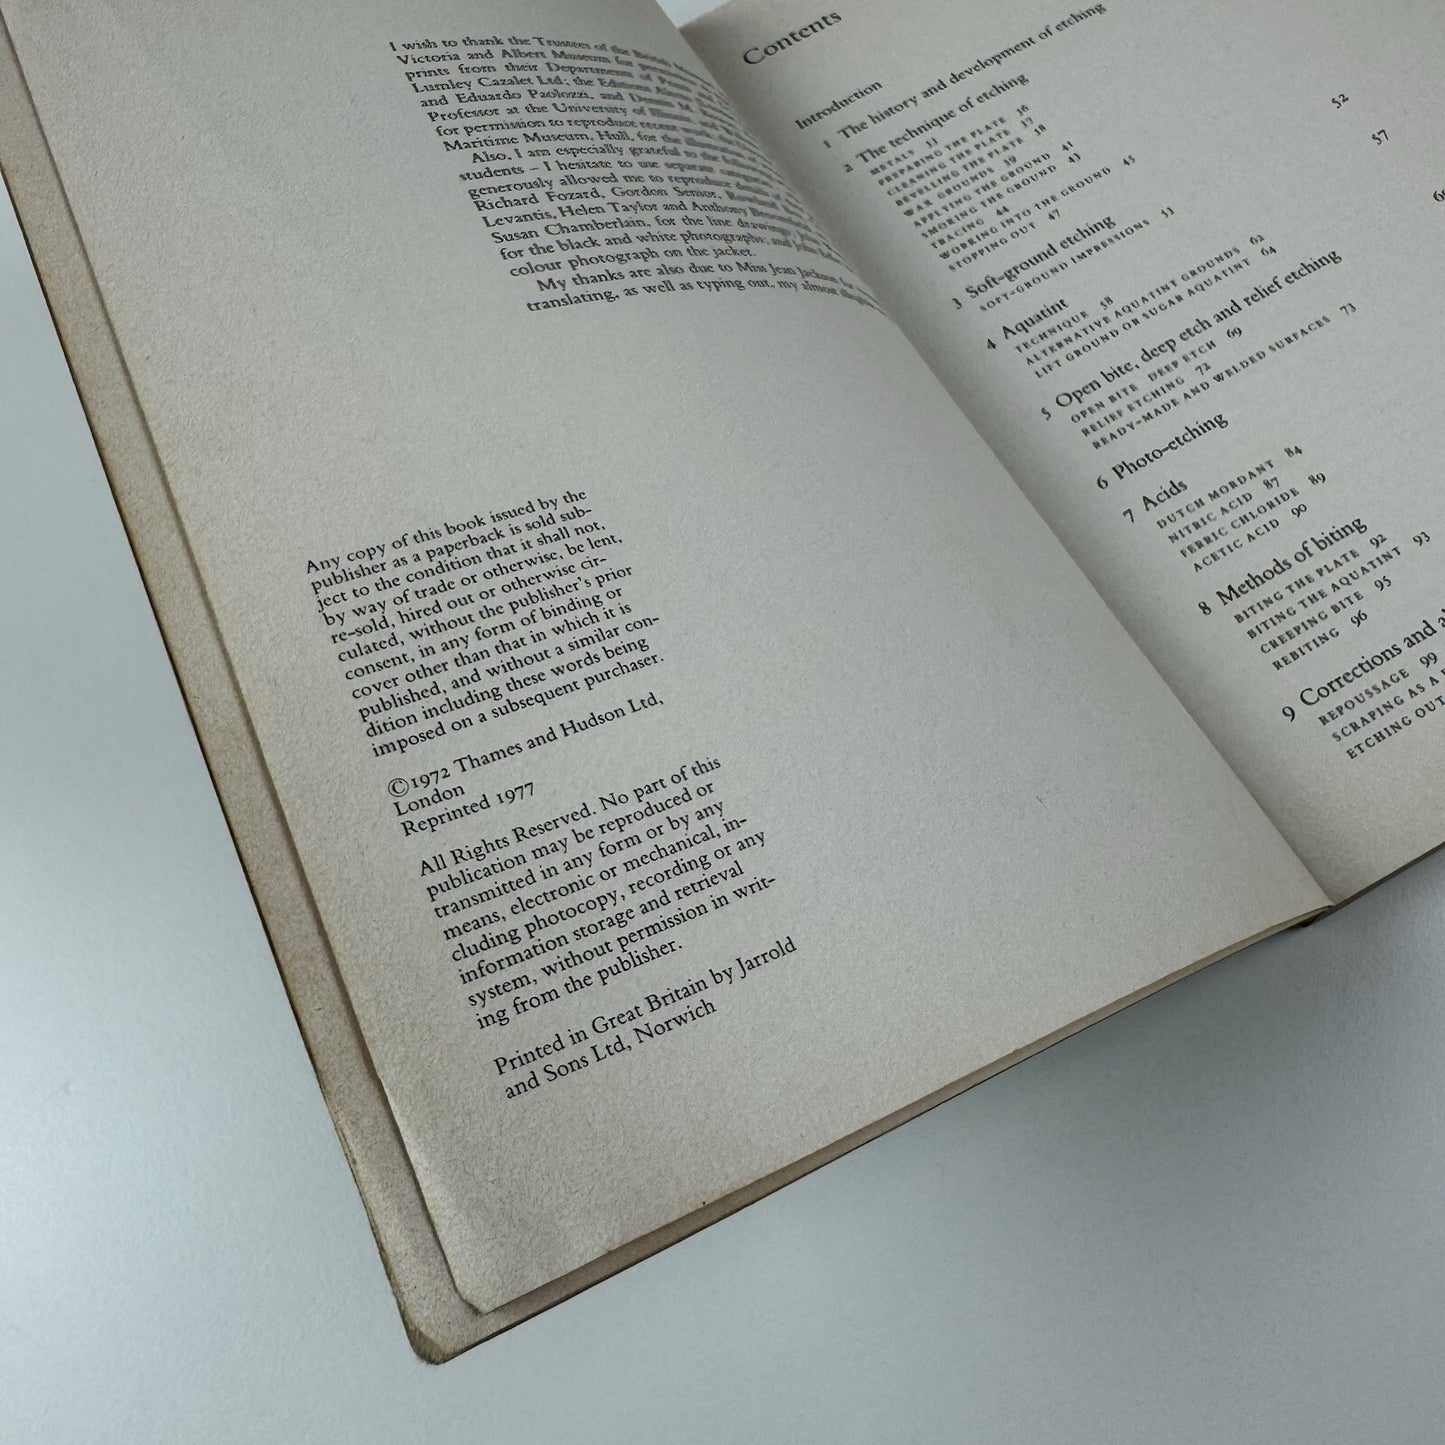 I wish to thank the Trustees of the British
Victoria and Albert Museum for
prints from their Department of
Lumley Cazalet Ltd; the
and Eduardo Paolozzi, and Dennis M.
Professor at the University of
for permission to reproduce recent work;
Maritime Museum, Hull, for the
Also, I am especially grateful to the following
students – I hesitate to use separate
generously allowed me to reproduce
Richard Fozard, Gordon Senior,
Levantis, Helen Taylor and Anthony
Susan Chamberlain, for the line drawings,
for the black and white photographs; and John
colour photograph on the jacket.
My thanks are also due to Miss Jean Jackson for
translating, as well as typing out, my almost
Any copy of this book issued by the
publisher as a paperback is sold sub-
ject to the condition that it shall not,
by way of trade or otherwise, be lent,
re-sold, hired out or otherwise cir-
culated, without the publisher's prior
consent, in any form of binding or
cover other than that in which it is
published, and without a similar con-
dition including these words being
imposed on a subsequent purchaser.
©1972 Thames and Hudson Ltd,
London
Reprinted 1977
All Rights Reserved. No part of this
publication may be reproduced or
transmitted in any form or by any
means, electronic or mechanical, in-
cluding photocopy, recording or any
information storage and retrieval
system, without permission in writ-
ing from the publisher.
Printed in Great Britain by Jarrold
and Sons Ltd, Norwich
Contents
Introduction
1 The history and development of etching
2 The technique of etching
METALS 33
PREPARING THE PLATE 36
CLEANING THE PLATE 37
BEVELLING THE PLATE 38
WAX GROUNDS 39
APPLYING THE GROUND 41
SMOKING THE GROUND 43
TRACING 44
WORKING INTO THE GROUND 45
STOPPING OUT 47
3 Soft-ground etching 52
SOFT-GROUND IMPRESSIONS 53
4 Aquatint 57
TECHNIQUE 58
ALTERNATIVE AQUATINT GROUNDS 62
LIFT GROUND OR SUGAR AQUATINT 64
5 Open bite, deep etch and relief etching
OPEN BITE DEEP ETCH 69
RELIEF ETCHING 72
READY-MADE AND WELDED SURFACES 73
6 Photo-etching
7 Acids
DUTCH MORDANT 84
NITRIC ACID 87
FERRIC CHLORIDE 89
ACETIC ACID 90
8 Methods of biting
BITING THE PLATE 92
BITING THE AQUATINT 93
CREEPING BITE 95
REBITING 96
9 Corrections and
REPOUSSAGE 99
SCRAPING AS A
ETCHING OUT